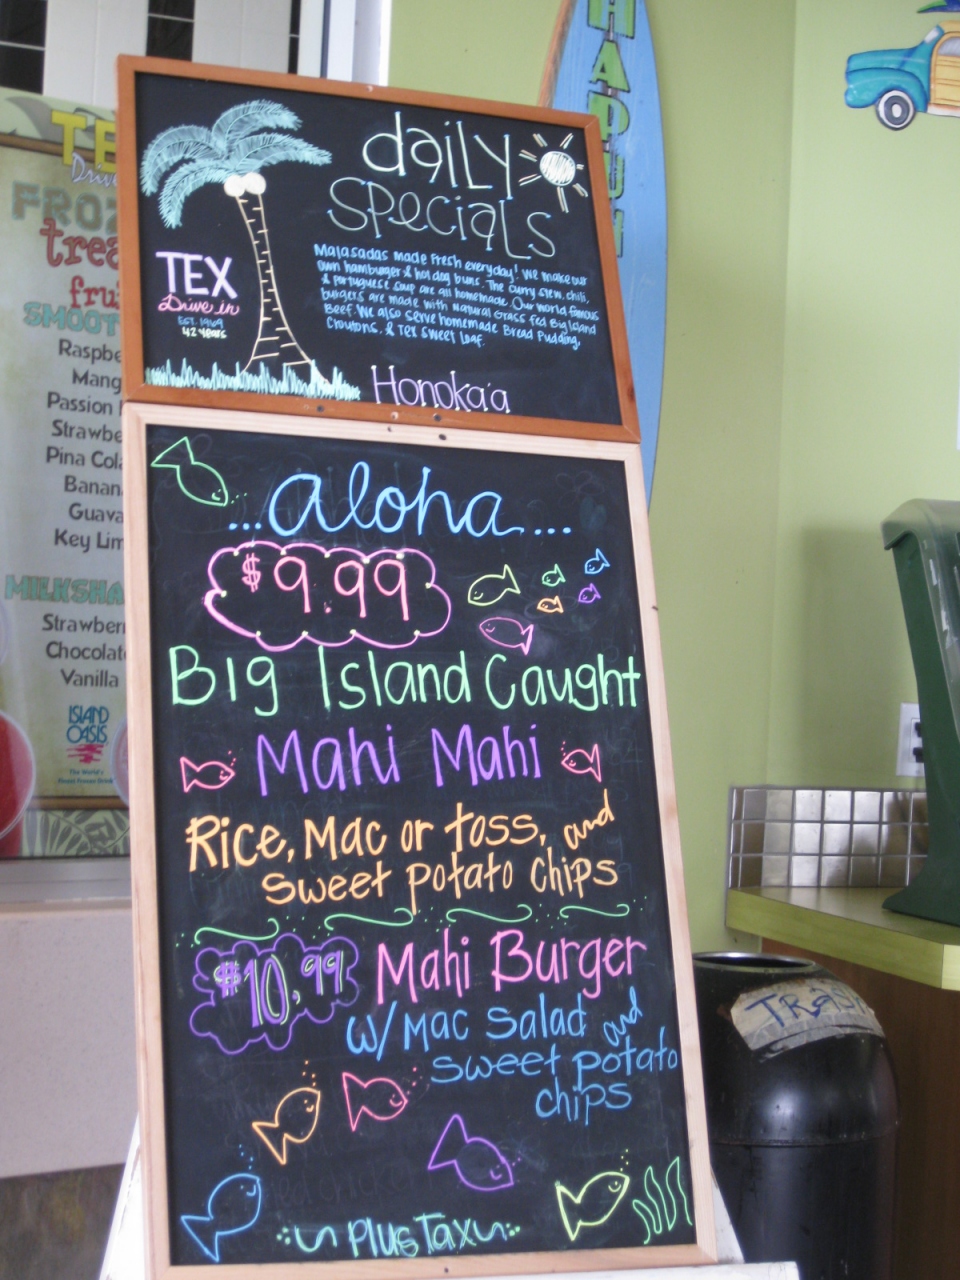 daily
specials
Malasadas made fresh everyday! We make our
own hamburger & hot dog buns. The curry stew, chili,
& Portuguese soup are all homemade. Our world famous
burgers are made with Natural Grass fed Big Island
Beef. We also serve homemade Bread Pudding,
Croutons, & Tex Sweet Loaf.
TEX
Drive in
EST. 1969
42 years
Honoka'a
...aloha...
$9.99
Big Island Caught
Mahi Mahi
Rice, Mac or toss, and
sweet potato chips
$10.99 Mahi Burger
w/ Mac Salad and
sweet potato
chips
Plus Tax
TE
Drive
FROZ
trea
fru
SMOOT
Raspbe
Mang
Passion
Strawbe
Pina Col
Banan
Guava
Key Lim
MILKSHA
Strawber
Chocolat
Vanilla
ISLAND
OASIS
The World's
Finest Frozen Drink
TRASH